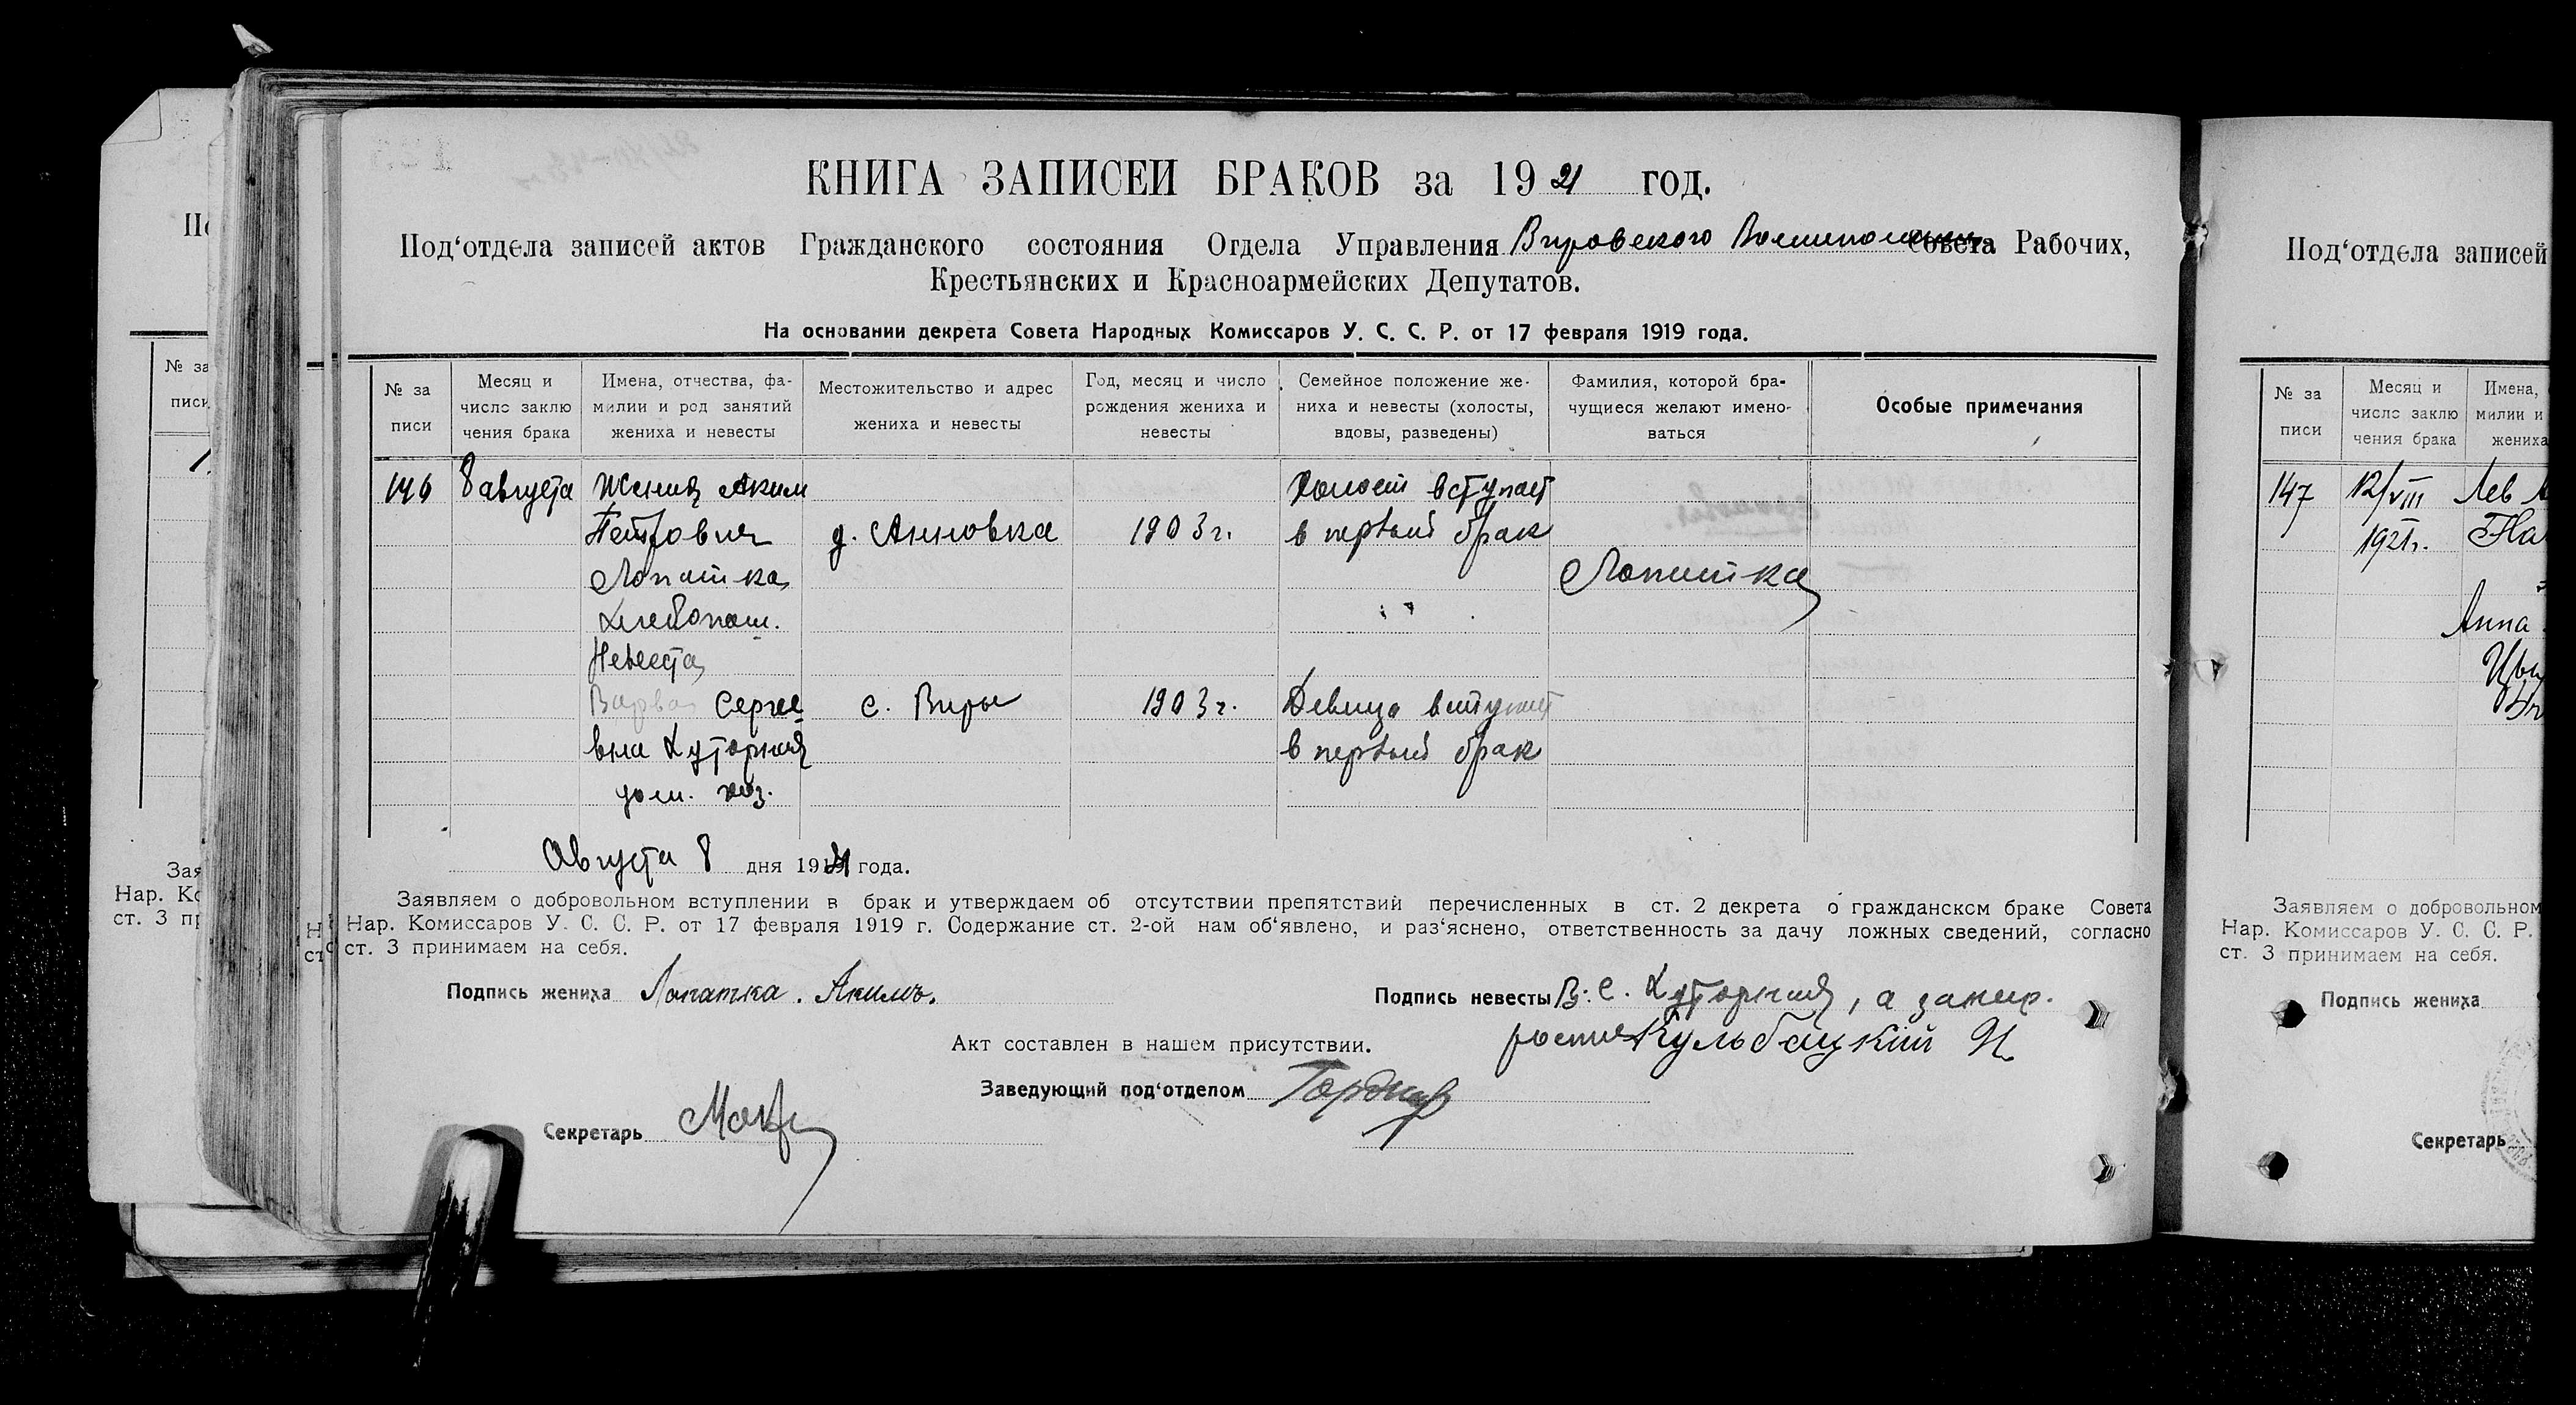 КНИГА ЗАПИСЕЙ БРАКОВ за 1921 год.
Под‘отдела записей актов Гражданского состояния Отдела Управления Вировского Волисполкома Совета Рабочих,
Крестьянских и Красноармейских Депутатов.
На основании декрета Совета Народных Комиссаров У. С. С. Р. от 17 февраля 1919 года.
№ за писи
Месяц и число заклю чения брака
Имена, отчества, фа- милии и род занятий жениха и невесты
Местожительство и адрес жениха и невесты
Год, месяц и число рождения жениха и невесты
Семейное положение же- ниха и невесты (холосты, вдовы, разведены)
Фамилия, которой бра- чущиеся желают имено- ваться
Особые примечания
146 8 августа Жених Аким Холост вступает
Петрович д. Анновка 1903 г. в первый брак
Лопатка Лопатка
хлебопаш.
Невеста
Варва Сергее с. Виры 1903 г. Девица вступает
вна Хуторная в первый брак
дом. хоз.
Августа 8 дня 1921 года.
Заявляем о добровольном вступлении в брак и утверждаем об отсутствии препятствий перечисленных в ст. 2 декрета о гражданском браке Совета
Нар. Комиссаров У. С. С. Р. от 17 февраля 1919 г. Содержание ст. 2-ой нам об‘явлено, и раз‘яснено, ответственность за дачу ложных сведений, согласно
ст. 3 принимаем на себя.
Подпись жениха Лопатка. Акимъ.
Подпись невесты В. С. Хуторная, а за неих.
роспися Кульбацкий И.
Акт составлен в нашем присутствии.
Заведующий под‘отделом
Секретарь
№ за
писи
Зая
Нар. Ко
ст. 3 пр
Под‘отдела записей
№ за писи
Месяц и число заклю чения брака
Имена,
милии и
жениха
147 12/VIII Лев
1921 г. На
Анна
Заявляем о добровольном
Нар. Комиссаров У. С. С. Р.
ст. 3 принимаем на себя.
Подпись жениха
Секретарь